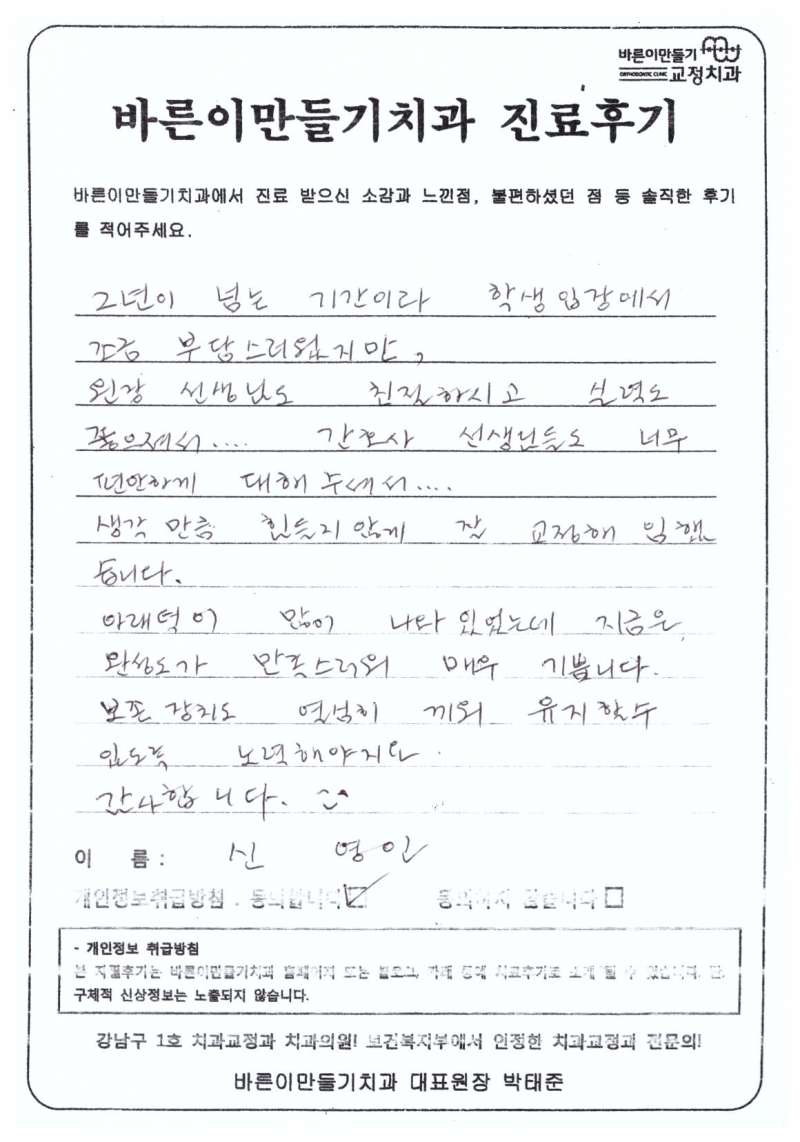 바른이만들기
ORTHODONTIC CLINIC 교정치과
바른이만들기치과 진료후기
바른이만들기치과에서 진료 받으신 소감과 느낀점, 불편하셨던 점 등 솔직한 후기
를 적어주세요.
2년이 넘는 기간이라 학생입장에서
조금 부담스러웠지만,
원장 선생님도 친절하시고 실력도
좋으셔서.... 간호사 선생님들도 너무
편안하게 대해 주셔서....
생각 만큼 힘들지 않게 잘 교정해 임했
습니다.
아래턱이 많이 나와 있었는데 지금은
완성도가 만족스러워 매우 기쁩니다.
보존 장치도 열심히 끼워 유지할수
있도록 노력해야지요.
감사합니다.
이 름: 신 영인
개인정보취급방침 . 동의합니다 동의하지 않습니다
- 개인정보 취급방침
본 치험후기는 바른이만들기치과 홈페이지 또는 블로그, 카페 등에 치료후기로 소개 될 수 있습니다. 단,
구체적 신상정보는 노출되지 않습니다.
강남구 1호 치과교정과 치과의원! 보건복지부에서 인정한 치과교정과 전문의!
바른이만들기치과 대표원장 박태준